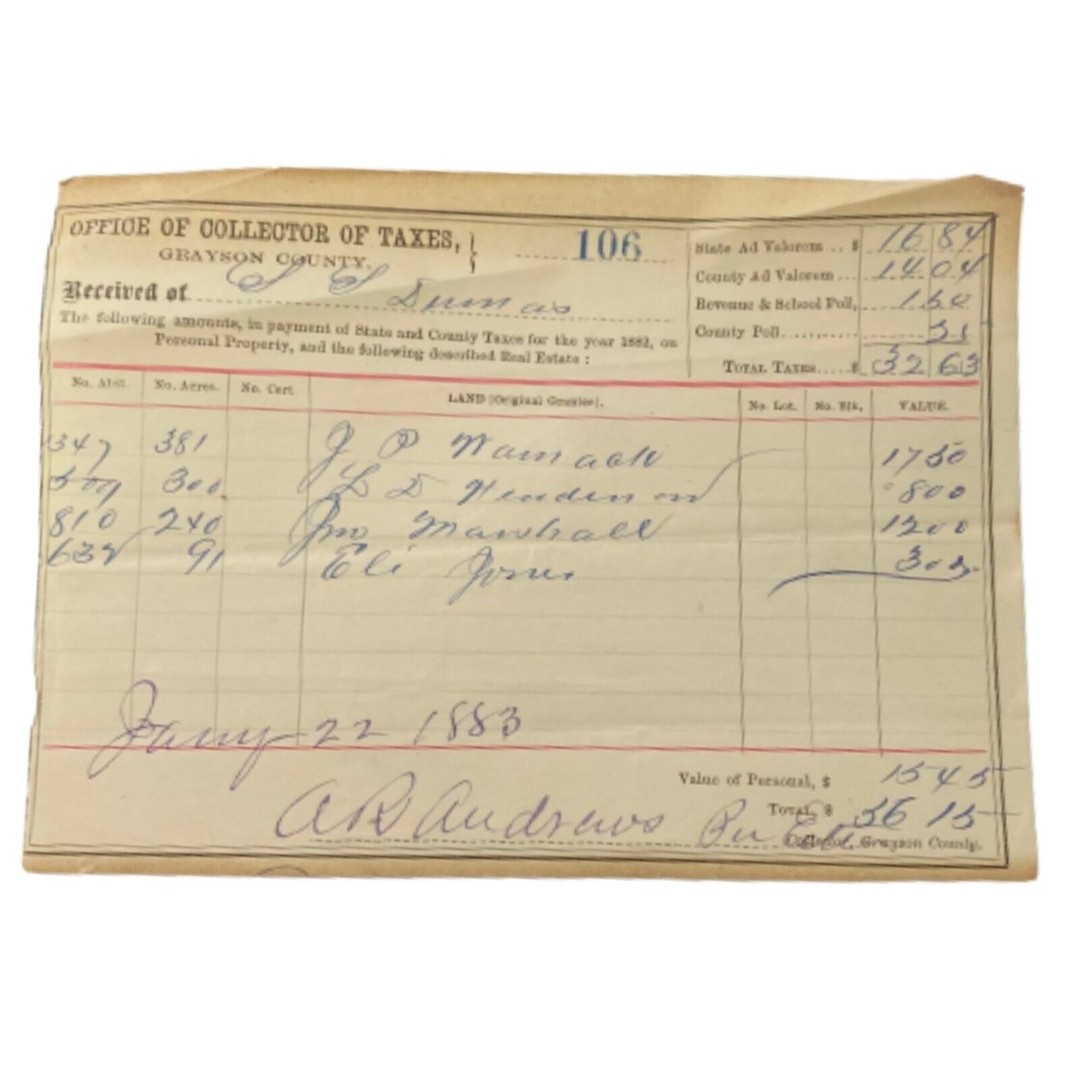 OFFICE OF COLLECTOR OF TAXES,
GRAYSON COUNTY.
106
Received of S S Dumas
The following amounts, in payment of State and County Taxes for the year 1882, on
Personal Property, and the following described Real Estate :
State Ad Valorem .. $ 16 84
County Ad Valorem ... 14 04
Revenue & School Poll, 1 50
County Poll. 25
TOTAL TAXES.....$ 32 63
No. Abst. No. Acres. No. Cert. LAND (Original Grantee). No. Lot. No. Blk. VALUE.
1347 381 J P Wamack 1750
509 300 L D Henderson 800
810 240 Jno Marshall 1200
632 91 Eli Jones 300
Jany 22 1883
Value of Personal, $ 1545
Total, $ 5615
A R Andrews
Collector, Grayson County.